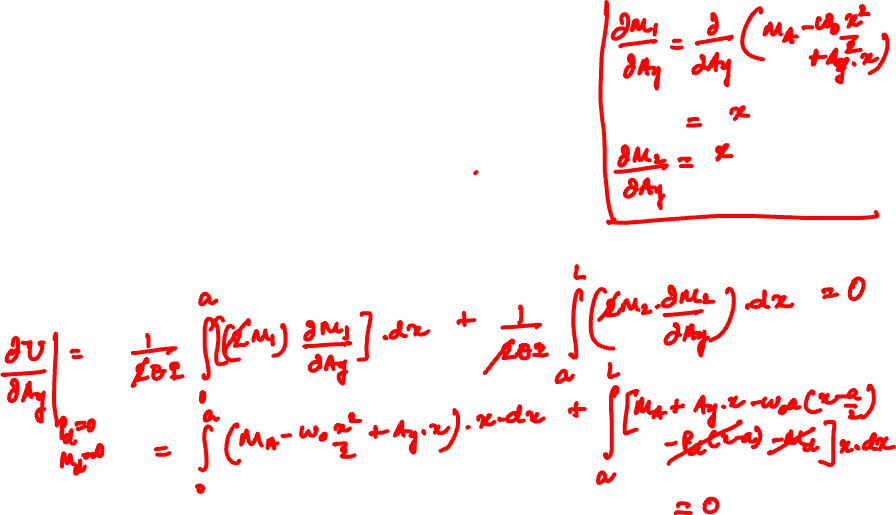 ∂M₁/∂Ay = ∂/∂Ay (M_A - ω₀ x²/2 + Ay·x)
= x
∂M₂/∂Ay = x
∂U/∂Ay |_{P_d=0, M_d=0} = 1/2EI ∫₀^a [(2M₁) ∂M₁/∂Ay]·dx + 1/2EI ∫_a^L (2M₂·∂M₂/∂Ay)·dx = 0
= ∫₀^a (M_A - ω₀ x²/2 + Ay·x)·x·dx + ∫_a^L [M_A + Ay·x - ω₀a(x - a/2) - P_d(x-a) - M_d] x·dx
= 0